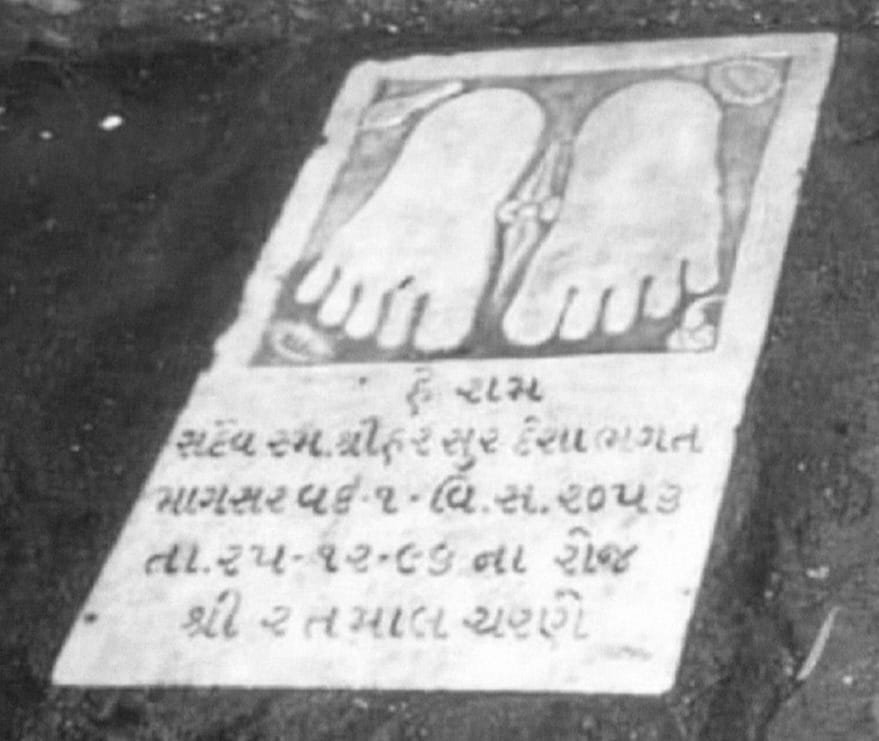 હે રામ
સદેવ સ્મ.શ્રીહરસુર દેસાભગત
માગસર વદ-૧-વિ.સ.૨૦૫૩
તા.૨૫-૧૨-૯૬ ના રોજ
શ્રી રતમાલ ચરણે